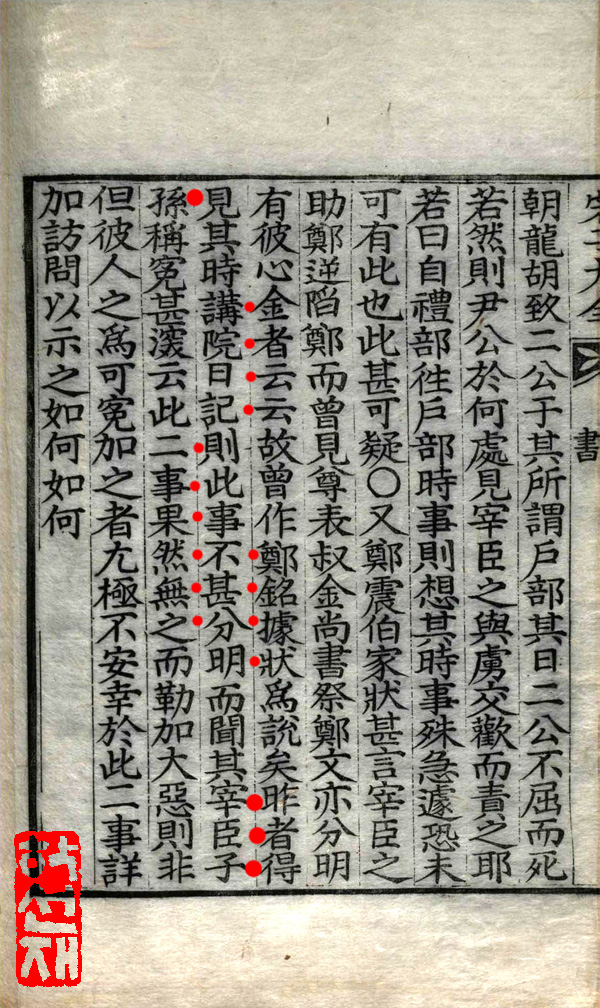 宋子大全 書
朝龍胡致二公于其所謂戶部其日二公不屈而死
若然則尹公於何處見宰臣之與虜交歡而責之耶
若曰自禮部徃戶部時事則想其時事殊急遽恐未
可有此也此甚可疑○又鄭震伯家狀甚言宰臣之
助鄭逆陷鄭而曾見尊表叔金尚書祭鄭文亦分明
有彼心金者云云故曾作鄭銘據狀爲說矣昨者得
見其時講院日記則此事不甚分明而聞其宰臣子
孫稱寃甚云此二事果然無之而勒加大惡則非
但彼人之爲可寃加之者尤極不安幸於此二事詳
加訪問以示之如何如何